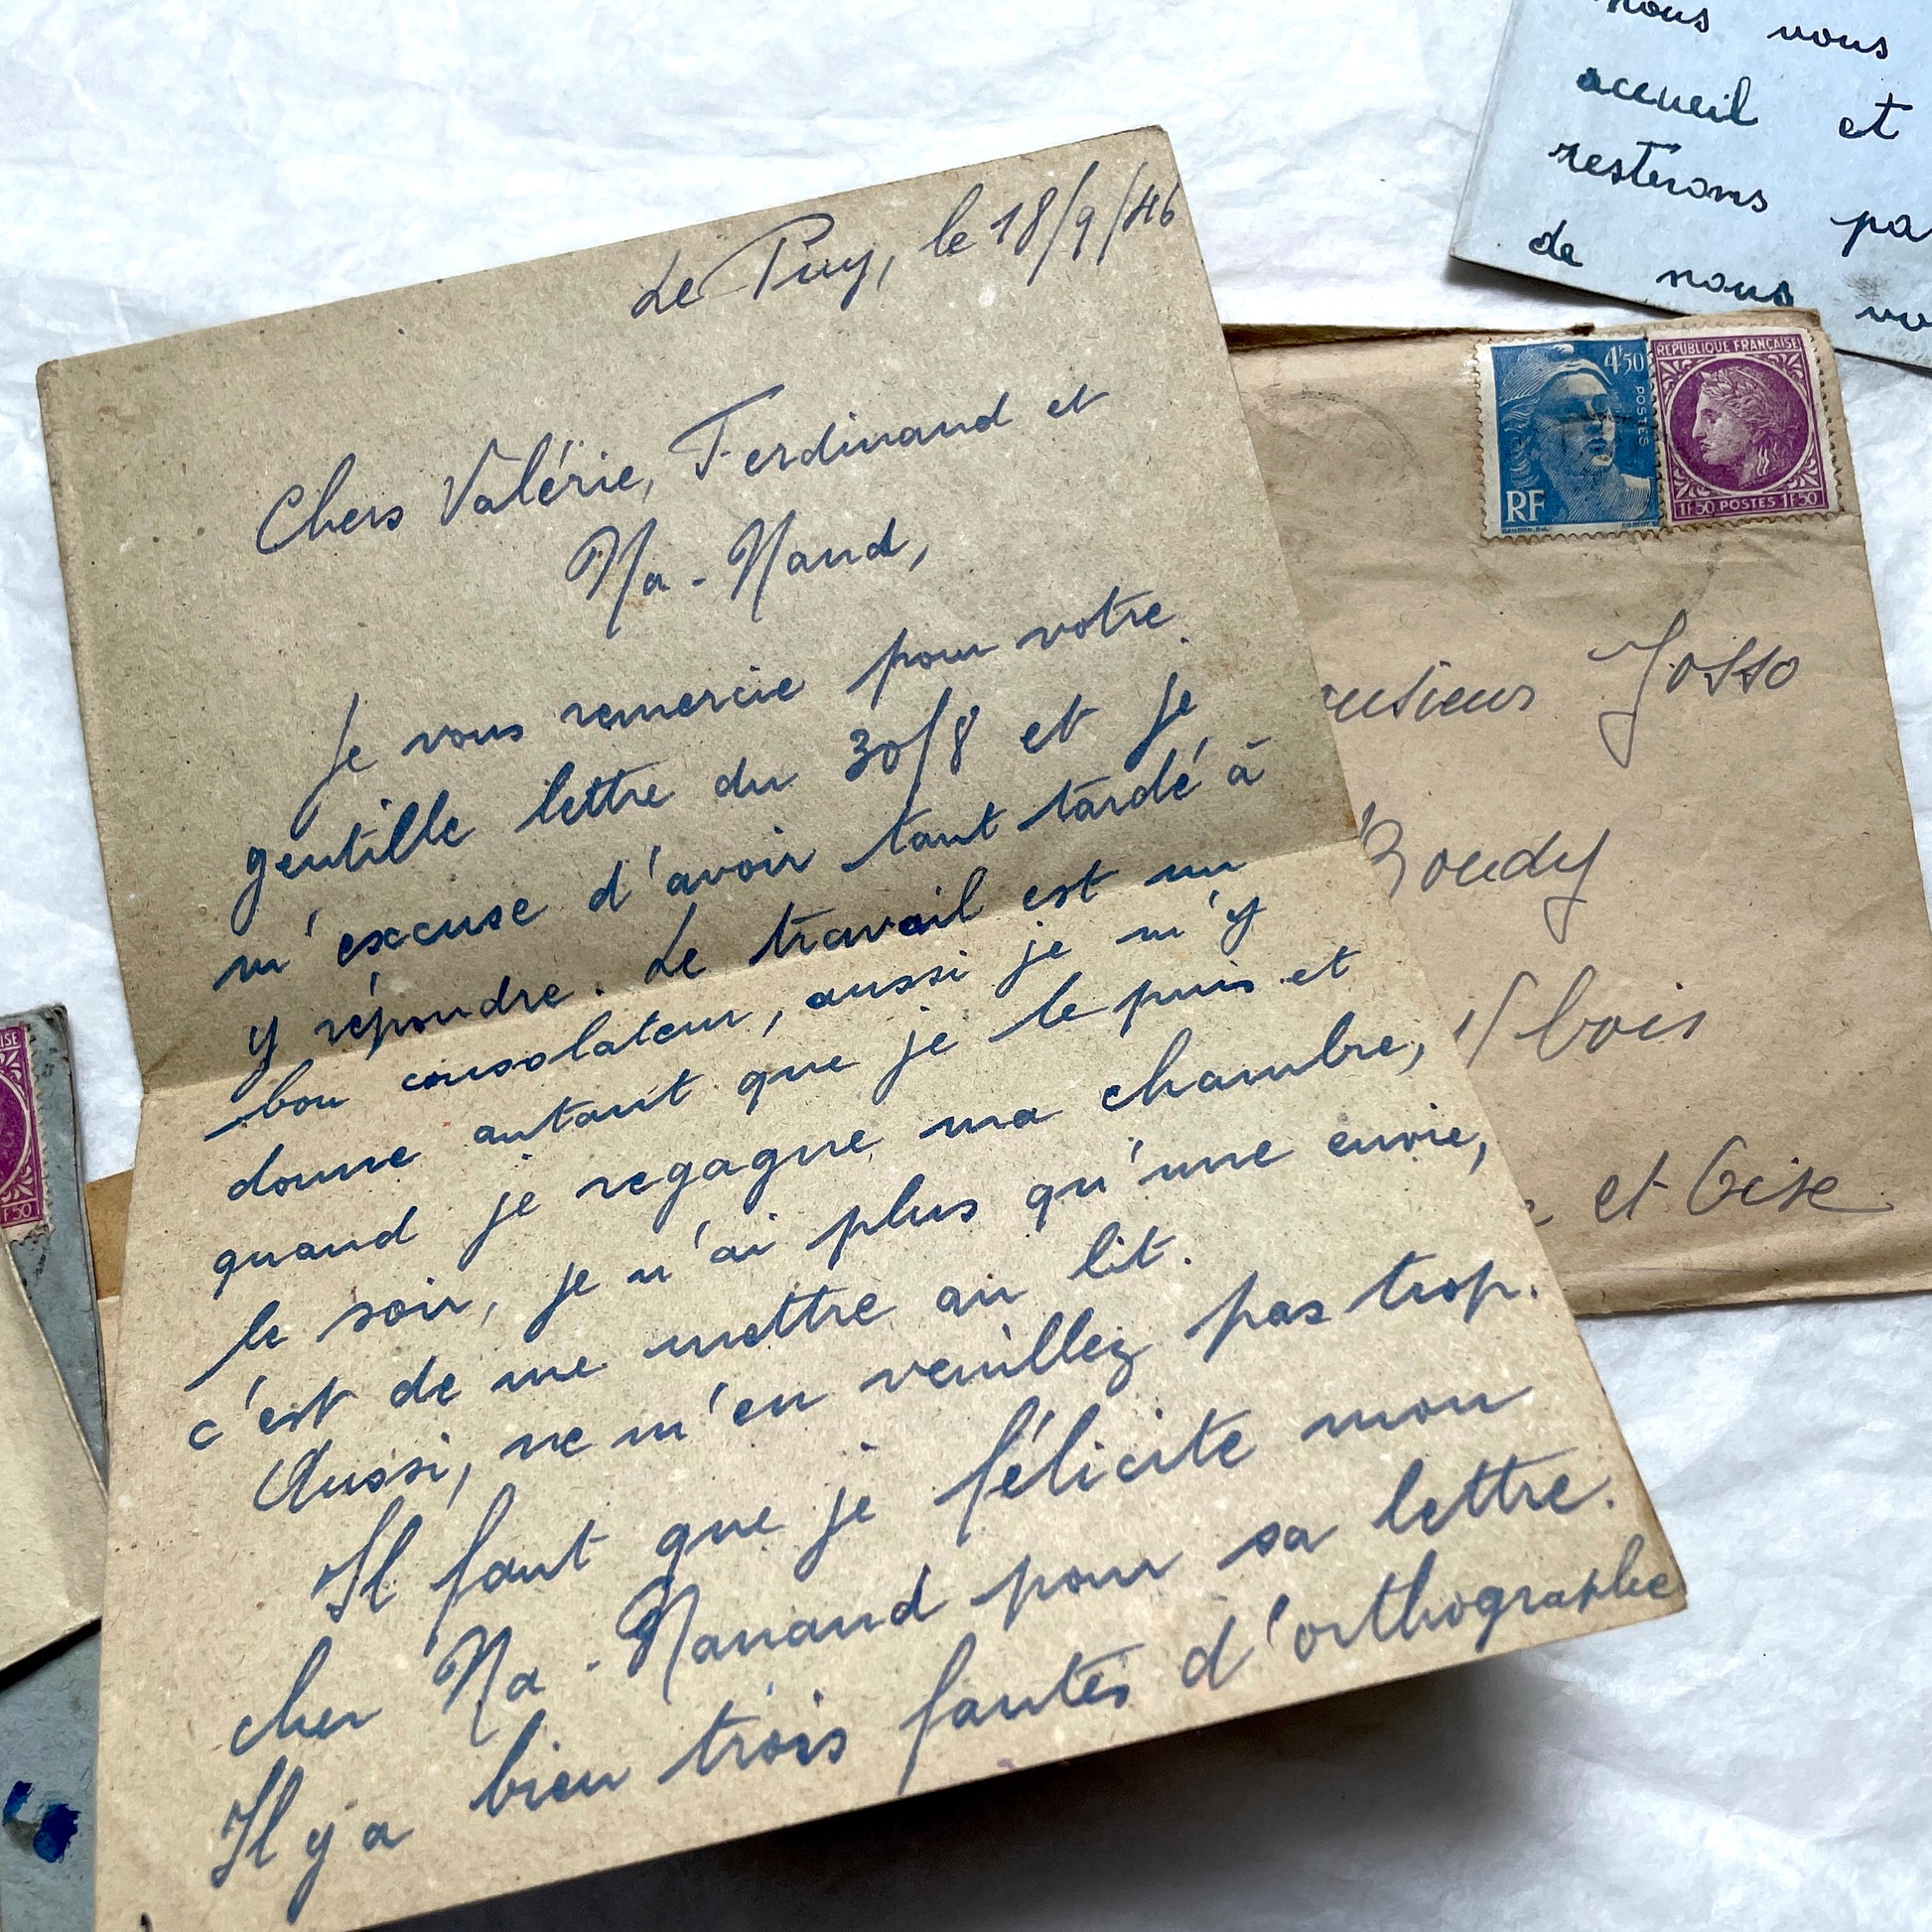 Le Puy, le 18/9/46
Chers Valérie, Ferdinand et
Na-Nand,
Je vous remercie pour votre
gentille lettre du 30/8 et je
m'excuse d'avoir tant tardé à
y répondre. Le travail est un
bon consolateur, aussi je m'y
donne autant que je le puis et
quand je regagne ma chambre,
le soir, je n'ai plus qu'une envie,
c'est de me mettre au lit.
Aussi, ne m'en veuillez pas trop.
Il faut que je félicite mon
cher Na-Nanand pour sa lettre.
Il y a bien trois fautes d'orthographe
nous vous
accueil et
resterons pa
de nous vo
4F50
POSTES
RF
REPUBLIQUE FRANÇAISE
1F50 POSTES 1F50
nsieur Josso
Bondy
s/ bois
e et Oise
ISE
F50